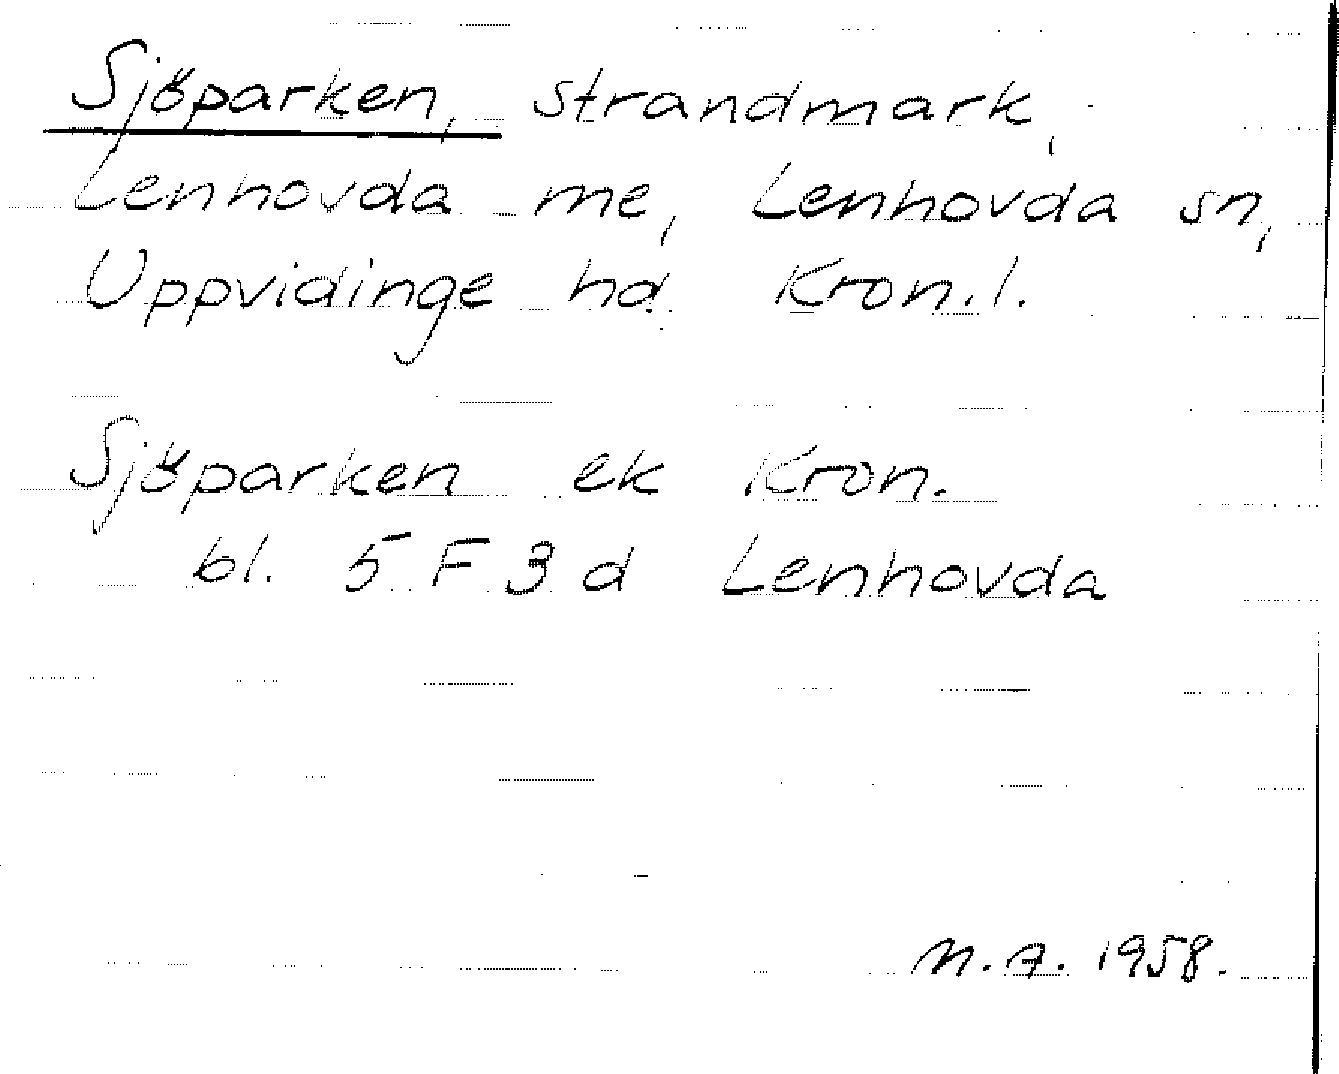 Sjöparken, strandmark,
Lenhovda me, Lenhovda sn,
Uppvidinge hd. Kron.l.
Sjöparken ek Kron.
bl. 5 F 3 d Lenhovda
M.A. 1958.